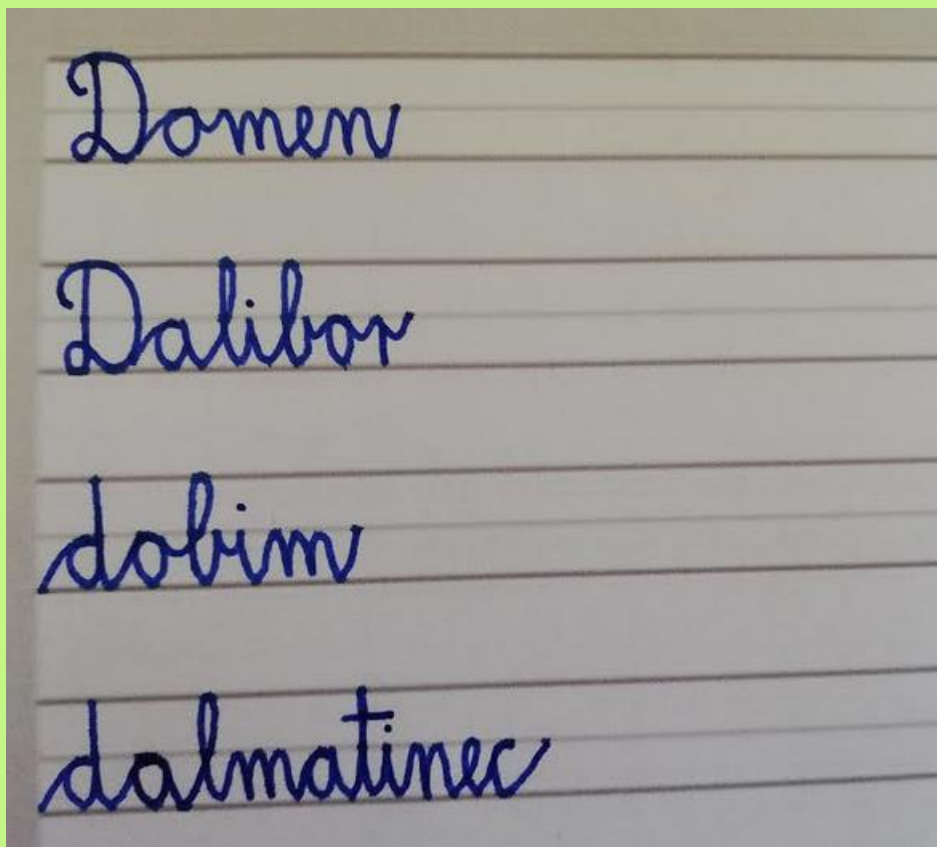 Domen
Dalibor
dobim
dalmatinec